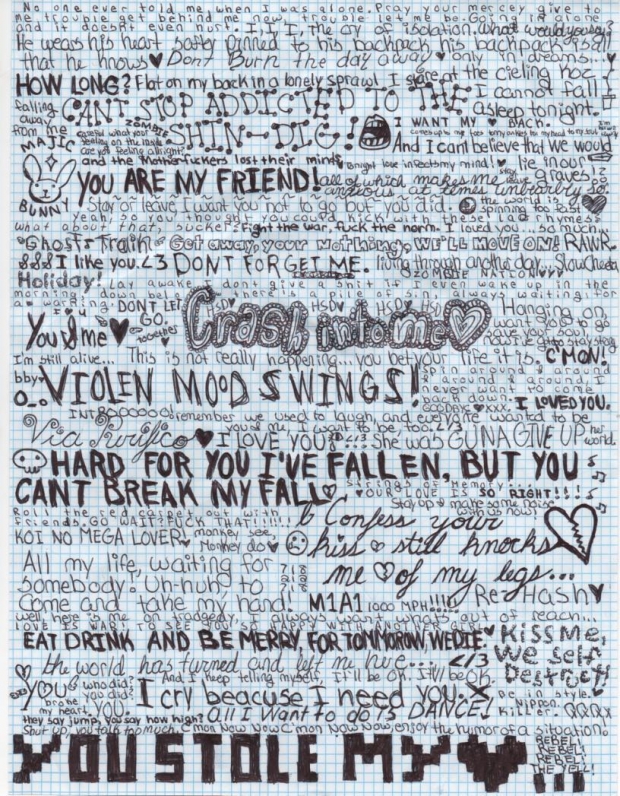 No one ever told me when I was alone. Pray your mercey give to
me trouble get behind me now, trouble let me be. Going in alone
and it doesnt even hurt. I, I, I, the cry of isolation. What would you say?
He wears his heart safty pinned to his backpack his backpack is all
that he knows ♥ Dont Burn the day away ♥ only in dreams...♥
HOW LONG? Flat on my back in a lonely sprawl I stare at the cieling
I cannot fall
asleep tonight.
falling away from me
CANT STOP ADDICTED TO THE
SHIN-DIG!
MAJIC
ZOMBIE
careful what your
I WANT MY ♥ BACK.
And I cant believe that we would
lie in our graves
and the motherfuckers lost their minds
BUNNY
YOU ARE MY FRIEND!
all of which makes me
anxious at times unbearbly so.
Stay or leave I want you not to go but you did.
the world is spinning too fast
yeah, so you thought you could kick with these and rhymes
what about that, sucker? Fight the war, fuck the norm. I loved you... so much.
Ghosts Train Get away, your nothing, WE'LL MOVE ON! RAWR.
I like you.<3 DONT FORGET ME. living through another day... Slow Cheeta
ZOMBIE NATION ♥♥♥
Holiday! lay awake dont give a shit if I even wake up in the
morning down below there is a pile of always waiting for
a warning.
DONT LET GO.
together
You & me ♥
Crash into me ♥
Hanging on
want you to go
save your soul
I'm still alive... This is not really happening... you bet your life it is. C'MON!
bby♥
O_o
VIOLEN MOOD SWINGS!
spin around & around
& around & around,
never want to come
back down.
GOODAYS ♥ XXX. I LOVED YOU.
INTROOOOOO! remember we used to laugh, and even me wanted to be
you & me, I want to be too.<3
Via Purifico ♥ I LOVE YOU <3 She was GUNA GIVE UP her world.
HARD FOR YOU I'VE FALLEN, BUT YOU
CANT BREAK MY FALL ♡
Strings of Memory...
♥ OUR LOVE IS SO RIGHT!!!!
Stay up & make some noise
with us now!
Roll the red carpet out with
friends. GO WAIT? FUCK THAT!!!!!!
KOI NO MEGA LOVER♥ monkey see, Monkey do♥
Confess your
kiss still knocks
me ♥ of my legs...
All my life, waiting for
somebody. Uh-huh to
come and take my hand.
M1A1 1000 MPH!!!!
Re-Hash♥
well here is one on tradgedy, I always want whats out of reach...
LOVE IS WAR! TO SEE YOU SO HAPPY WITH ANOTHER GIRL
EAT DRINK AND BE MERRY, FOR TOMMOROW, WE DIE ♥
Kiss Me,
We self
Destruct!
the world has turned and left me here... </3
And I keep telling myself, It'll be OK. It'll be OK.
you broke my heart
who did? you did? YOU.
I cry beacuse I need you. X
be in style.
Nippon.
killer. QQQX
they say jump, you say how high? all I want to do is DANCE!
Shut up, you talk too much. C'mon Now Now C'mon Now Now Now, enjoy the humor of a situation.
YOU STOLE MY ♥
REBEL!
REBEL!
REBEL!
THE YELL!